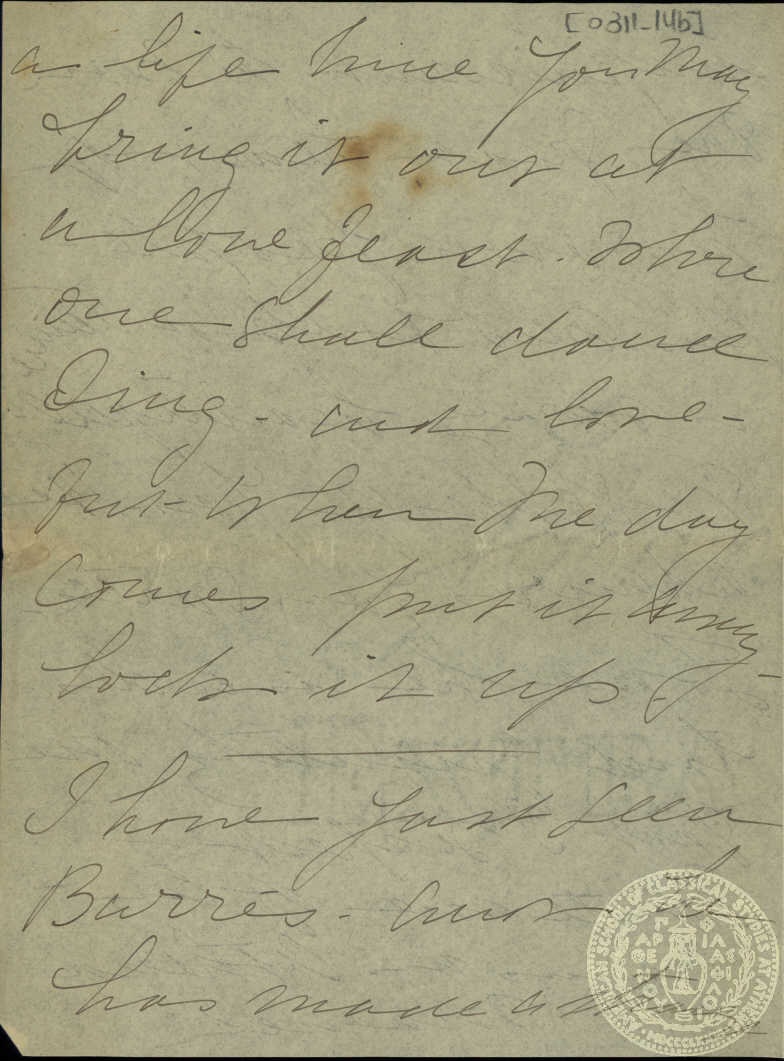 [0311-14b]
a life time you may
bring it out at
a love feast. Where
one shall dance
Sing - and love -
but when the day
comes put it away -
lock it up.
I have just seen
Barrès - and
has made a
AMERICAN SCHOOL OF CLASSICAL STUDIES AT ATHENS
ΠΑΡΘΕΝΟΣ ΦΙΛΑΣ ΦΙΛΟΛΟΓΟΣ